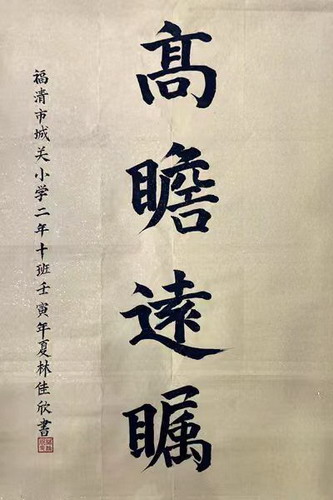 髙瞻遠矚
福清市城关小学二年十班壬寅年夏林佳欣書